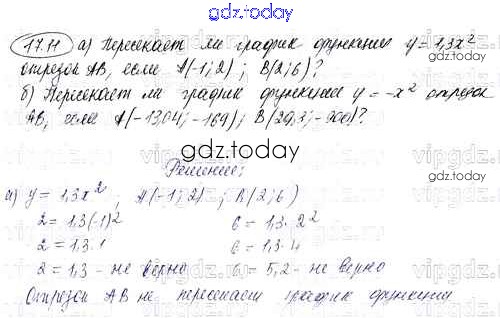 gdz.today
17.11 а) Пересекает ли график функции y = 1,3x²
отрезок AB, если A(-1; 2) ; B(2; 6)?
б) Пересекает ли график функции y = -x² отрезок
AB, если A(-13,04; -169); B(29,3; -900)?
gdz.today
Решение:
а) y = 1,3x² ; A(-1; 2) ; B(2; 6)
2 = 1,3(-1)² 6 = 1,3·2²
2 = 1,3·1 6 = 1,3·4
2 = 1,3 - не верно 6 = 5,2 - не верно
Отрезок AB не пересекает график функции
gdz.today